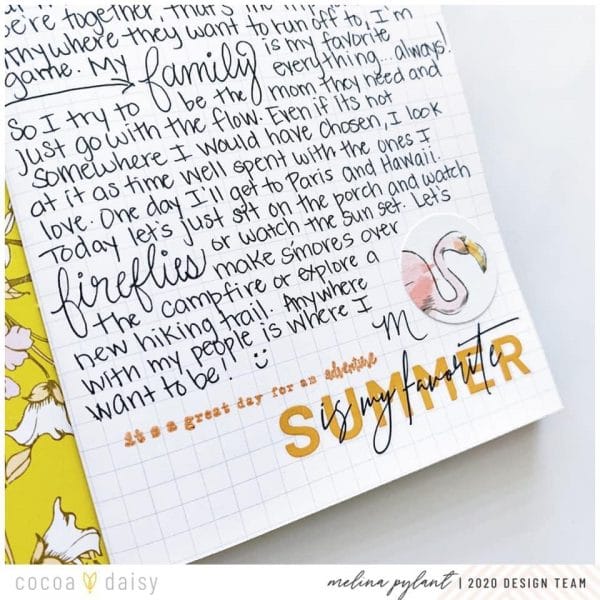 e're together, that's the
nywhere they want to run off to, I'm
game. My family is my favorite
everything...always!
So I try to be the mom they need and
just go with the flow. Even if its not
somewhere I would have chosen, I look
at it as time well spent with the ones I
love. One day I'll get to Paris and Hawaii.
Today let's just sit on the porch and watch
fireflies or watch the sun set. Let's
make s'mores over
the campfire or explore a
new hiking trail. Anywhere
with my people is where I
want to be! :)
M
it's a great day for an adventure
SUMMER
is my favorite
cocoa daisy
melina pylant | 2020 DESIGN TEAM